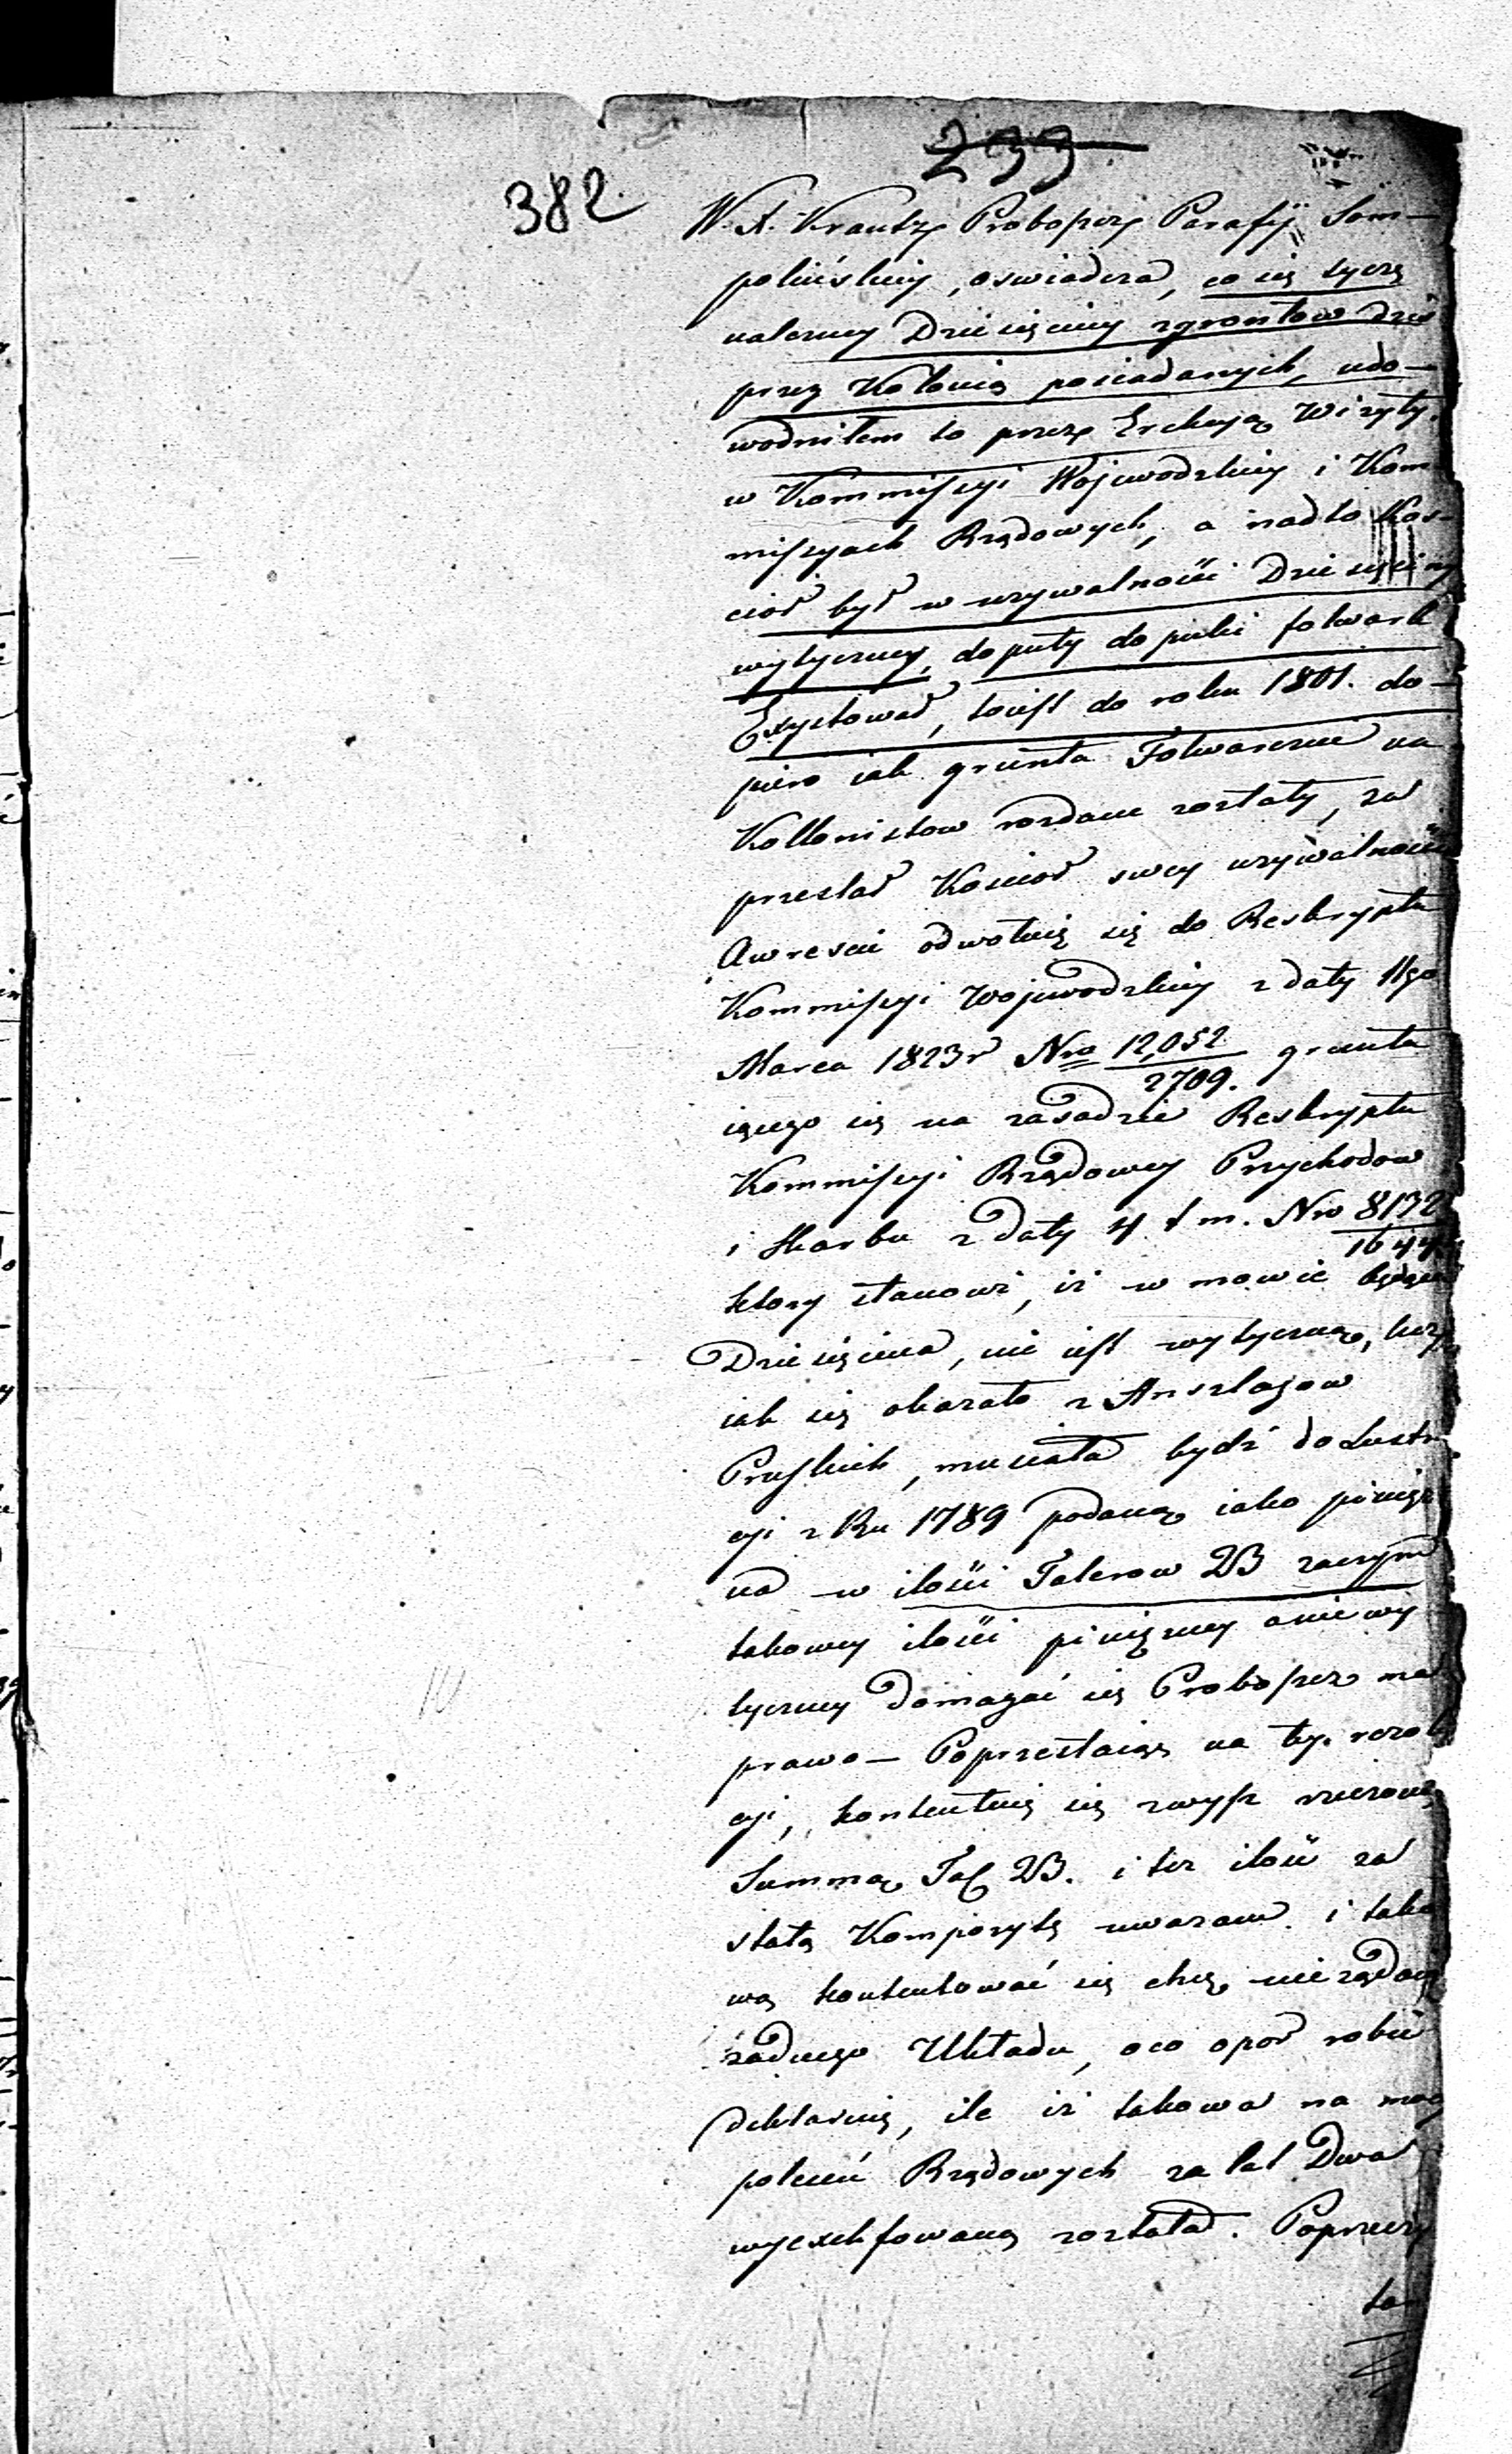 233
382.
W. X. Krautz Proboszcz Parafij Som-
polińskiey, oswiadcza, co się tycze
należney Dziesięciny zgrontow dziś
przez Kolonią posiadanych, udo-
wodniłem to przez Erekcyą Wizyty.
w Kommissyi Wojewodzkiey i Kom
missyach Rządowych, a nadto Kos-
cioł był w używalności Dziesięciny
wytyczney, do puty do puki folwark
Exystował, to iest do roku 1801. do-
piero iak grunta Folwarczne na
Kollonistow rozdane zostały, za
przestał Kościoł swey używalności
Awreście odwołuię się do Reskryptu
Kommissyi Wojewodzkiey z daty 11go
Marca 1823r Nro 12,052/2709. grunta
iącego się na zasadzie Reskryptu
Kommissyi Rządowey Przychodow
i Skarbu z daty 4 t m. Nro 8132
ktory stanowi, iż w mowie będąca
Dziesięcina, nie iest wytyczną, lecz
iak się okazało z Anszlagow
Pruskich, musiała bydź do Lustra
cyi z Ru 1789 podaną iako pienięż
na w ilości Talerow 23 zaczym
takowey ilości pieniężney a nie wy
tyczney domagać się Proboszcz ma
prawo — Poprzestaiąc na tey rezolu
cyi, kontentuię się zwysz rzeczoną
Summą Tal 23. i tez ilość za
stałą Kompozytę uważam i tako
wą kontentować się chcę nieżądaiąc
żadnego Układu, oco opor robić
deklaruię, ile iż takowa na mocy
poleceń Rządowych za lat Dwa
wyexekfowaną została. Poprzeczy
ta-